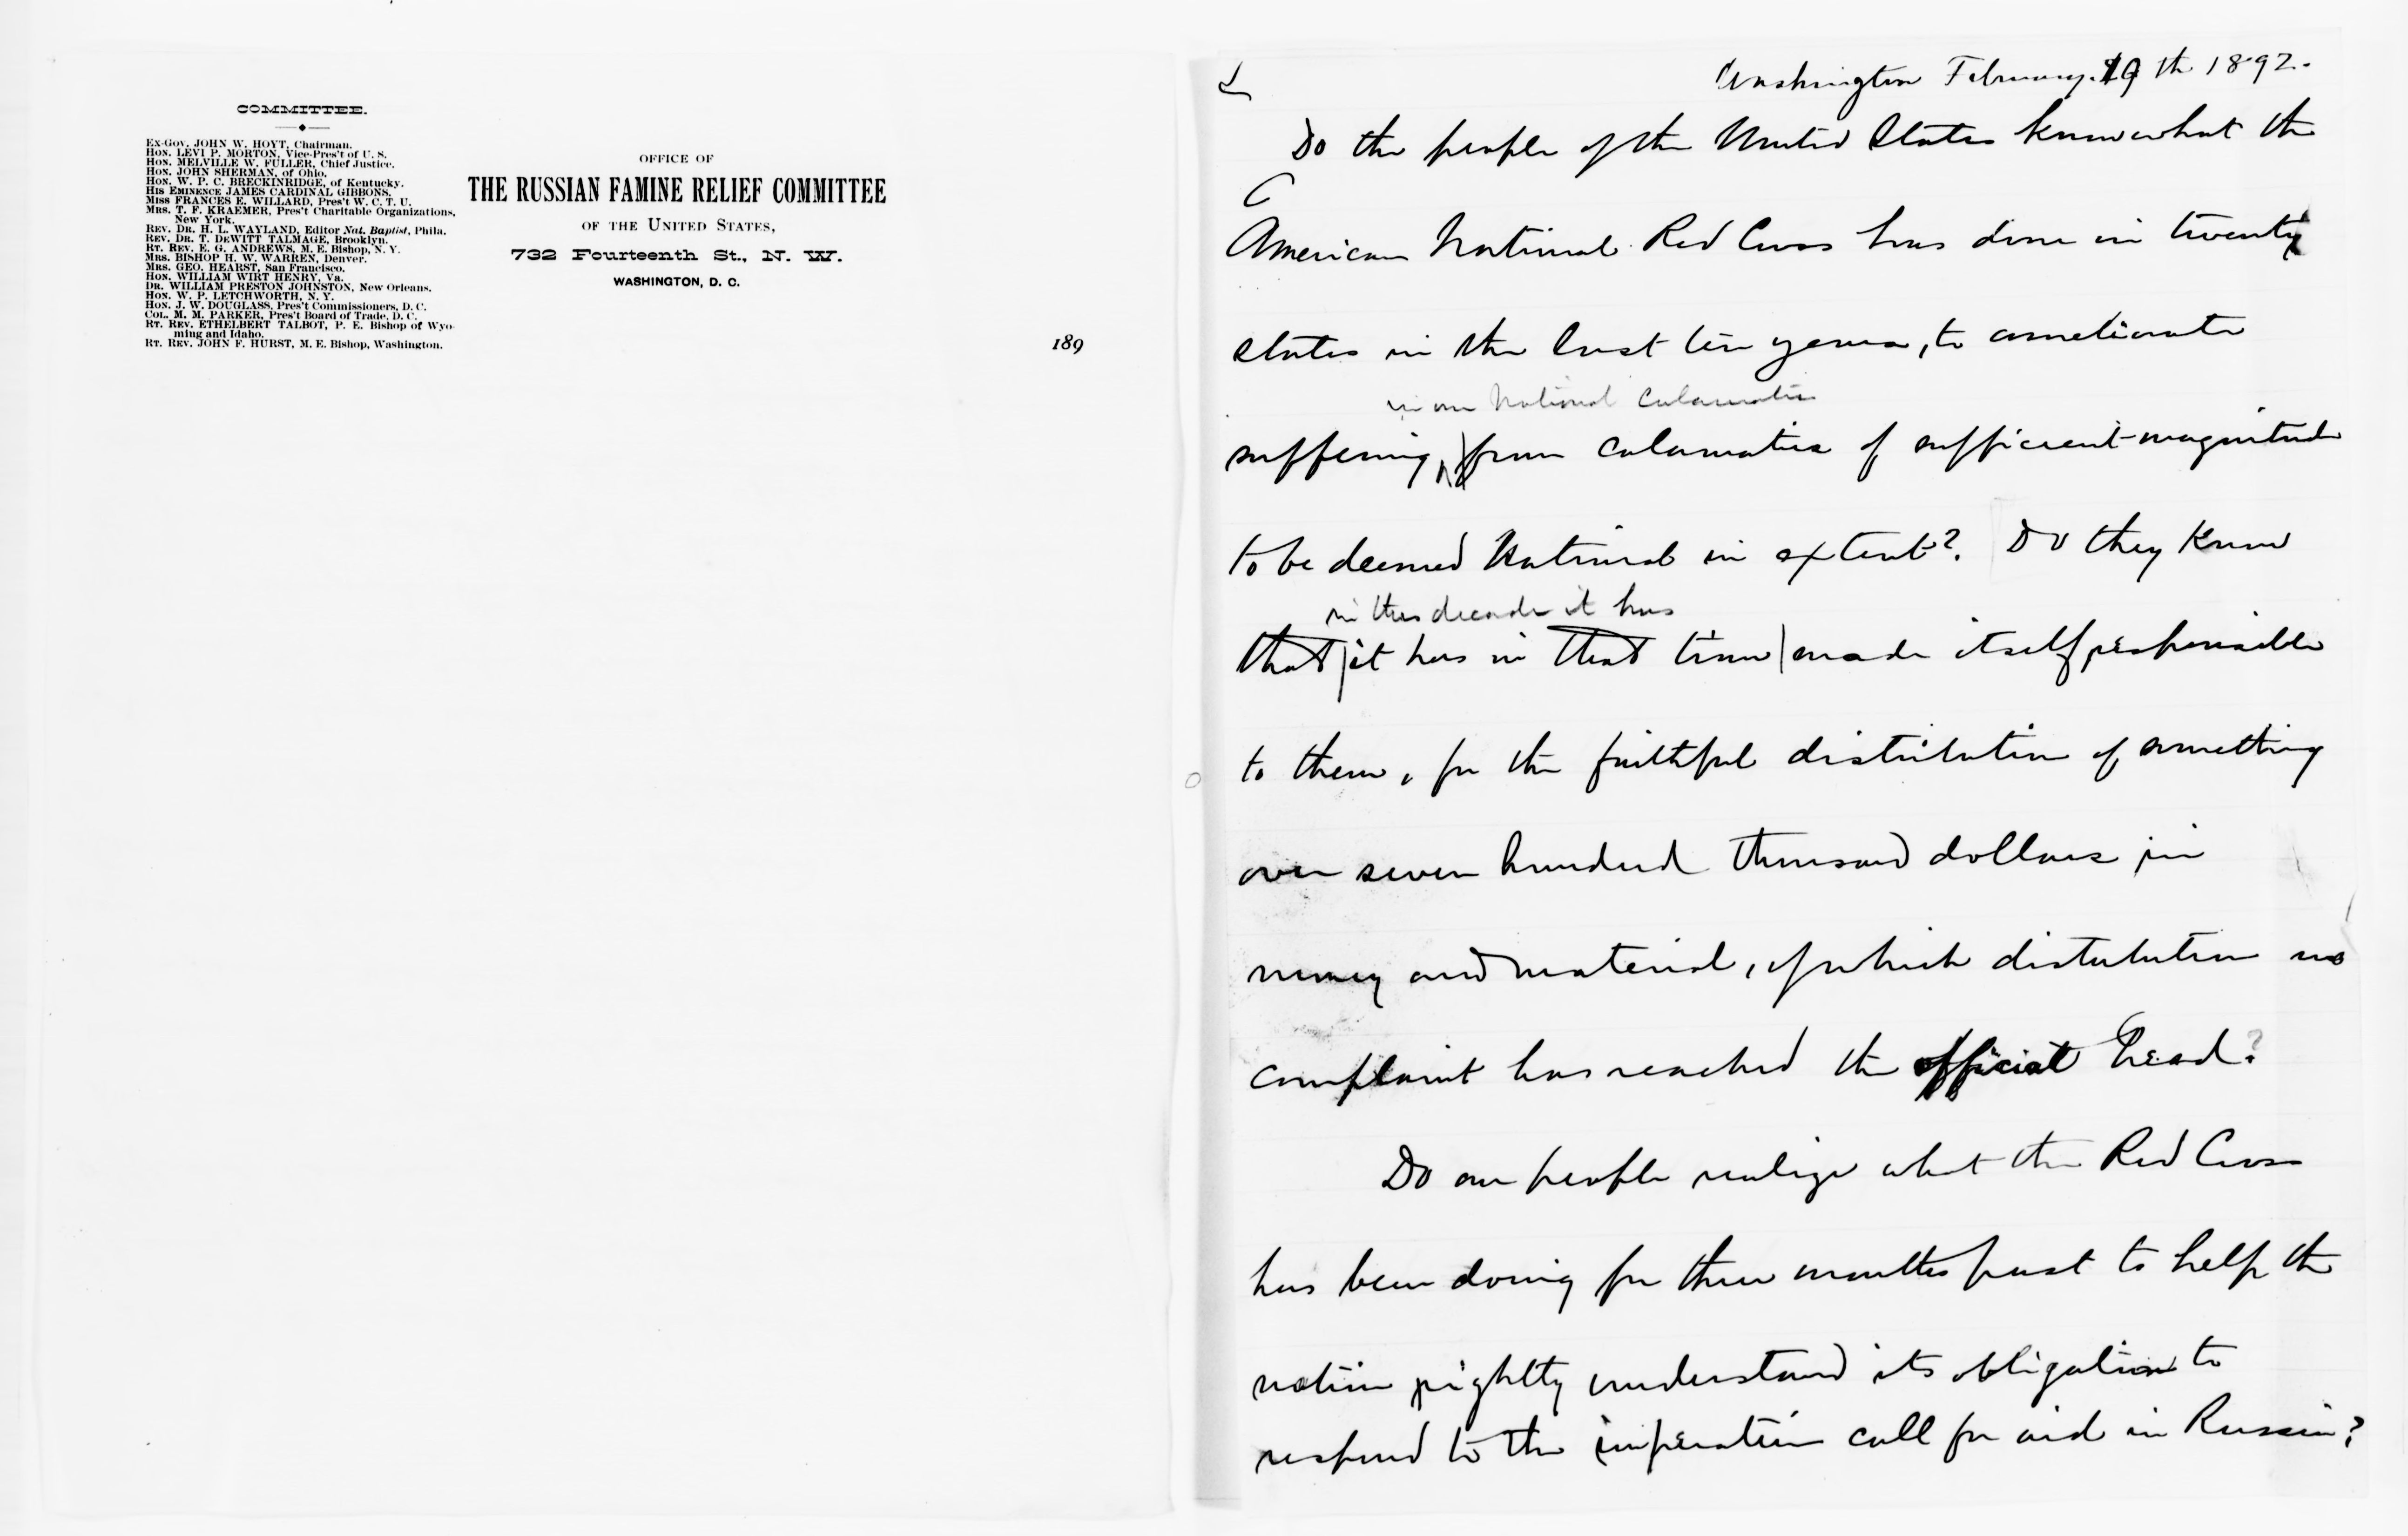 COMMITTEE.
Ex-Gov. JOHN W. HOYT, Chairman.
Hon. LEVI P. MORTON, Vice-Pres't of U. S.
Hon. MELVILLE W. FULLER, Chief Justice.
Hon. JOHN SHERMAN, of Ohio.
Hon. W. P. C. BRECKINRIDGE, of Kentucky.
His Eminence JAMES CARDINAL GIBBONS.
Miss FRANCES E. WILLARD, Pres't W. C. T. U.
Mrs. T. F. KRAEMER, Pres't Charitable Organizations,
New York.
Rev. Dr. H. L. WAYLAND, Editor Nat. Baptist, Phila.
Rev. Dr. T. DeWITT TALMAGE, Brooklyn.
Rt. Rev. E. G. ANDREWS, M. E. Bishop, N. Y.
Mrs. BISHOP H. W. WARREN, Denver.
Mrs. GEO. HEARST, San Francisco.
Hon. WILLIAM WIRT HENRY, Va.
Dr. WILLIAM PRESTON JOHNSTON, New Orleans.
Hon. W. P. LETCHWORTH, N. Y.
Hon. J. W. DOUGLASS, Pres't Commissioners, D. C.
Col. M. M. PARKER, Pres't Board of Trade, D. C.
Rt. Rev. ETHELBERT TALBOT, P. E. Bishop of Wyo-
ming and Idaho.
Rt. Rev. JOHN F. HURST, M. E. Bishop, Washington.
OFFICE OF
THE RUSSIAN FAMINE RELIEF COMMITTEE
OF THE UNITED STATES,
732 Fourteenth St., N. W.
WASHINGTON, D. C.
189
Washington February 19th 1892.
Do the people of the United States know what the
American National Red Cross has done in twenty
States in the last ten years, to ameliorate
in our National Calamities
suffering, from calamities of sufficient magnitude
to be deemed National in extent? Do they know
in this decade it has
that it has in that time made itself responsible
to them, for the faithful distribution of something
over seven hundred thousand dollars in
money and material, of which distribution no
complaint has reached the official head?
Do our people realize what the Red Cross
has been doing for three months past to help the
nation rightly understand its obligation to
respond to the imperative call for aid in Russia?